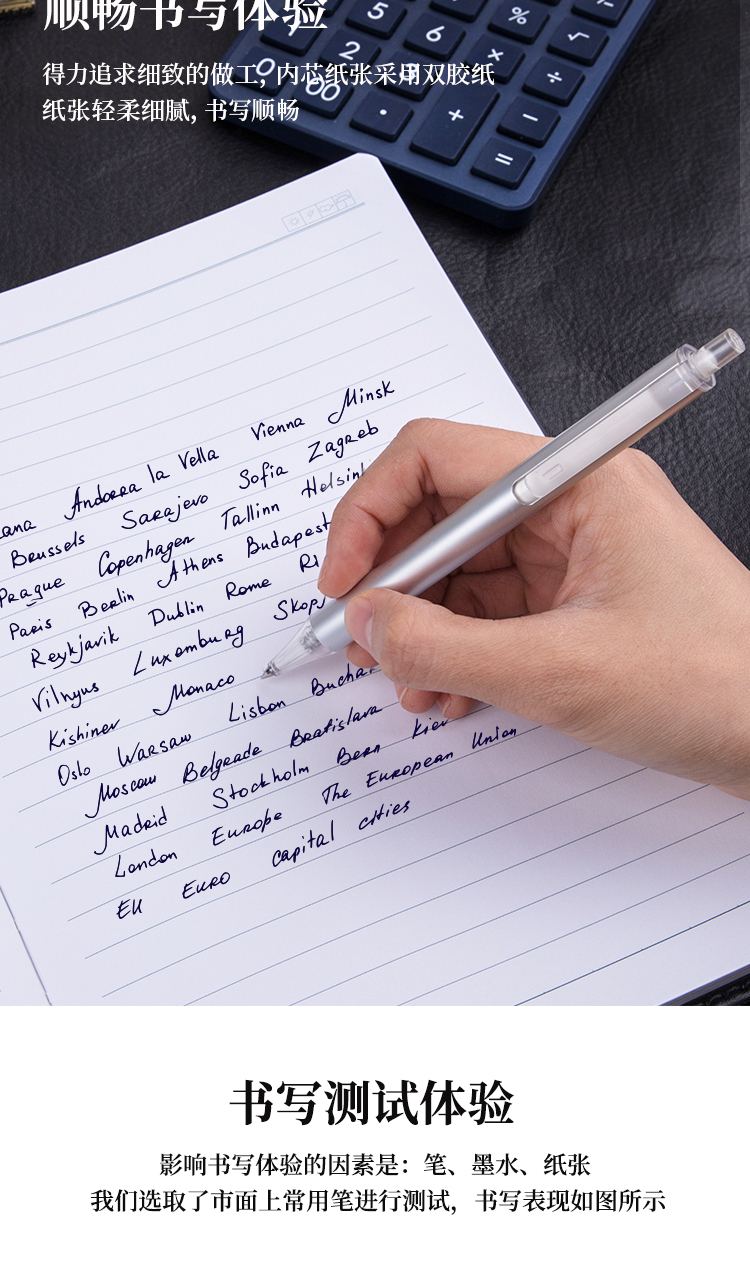 顺畅书写体验
5 6 % √
2 × ÷
0 00 · + −
=
得力追求细致的做工, 内芯纸张采用双胶纸
纸张轻柔细腻, 书写顺畅
Andorra la Vella Vienna Minsk
Brussels Sarajevo Sofia Zagreb
Prague Copenhagen Tallinn
Paris Berlin Athens Budapest
Reykjavik Dublin Rome
Vilnyus Luxemburg
Kishinev Monaco
Oslo Warsaw Lisbon
Moscow Belgrade Bratislava
Madrid Stockholm Bern Kiev
London Europe The European Union
EU EURO capital cities
书写测试体验
影响书写体验的因素是：笔、墨水、纸张
我们选取了市面上常用笔进行测试，书写表现如图所示